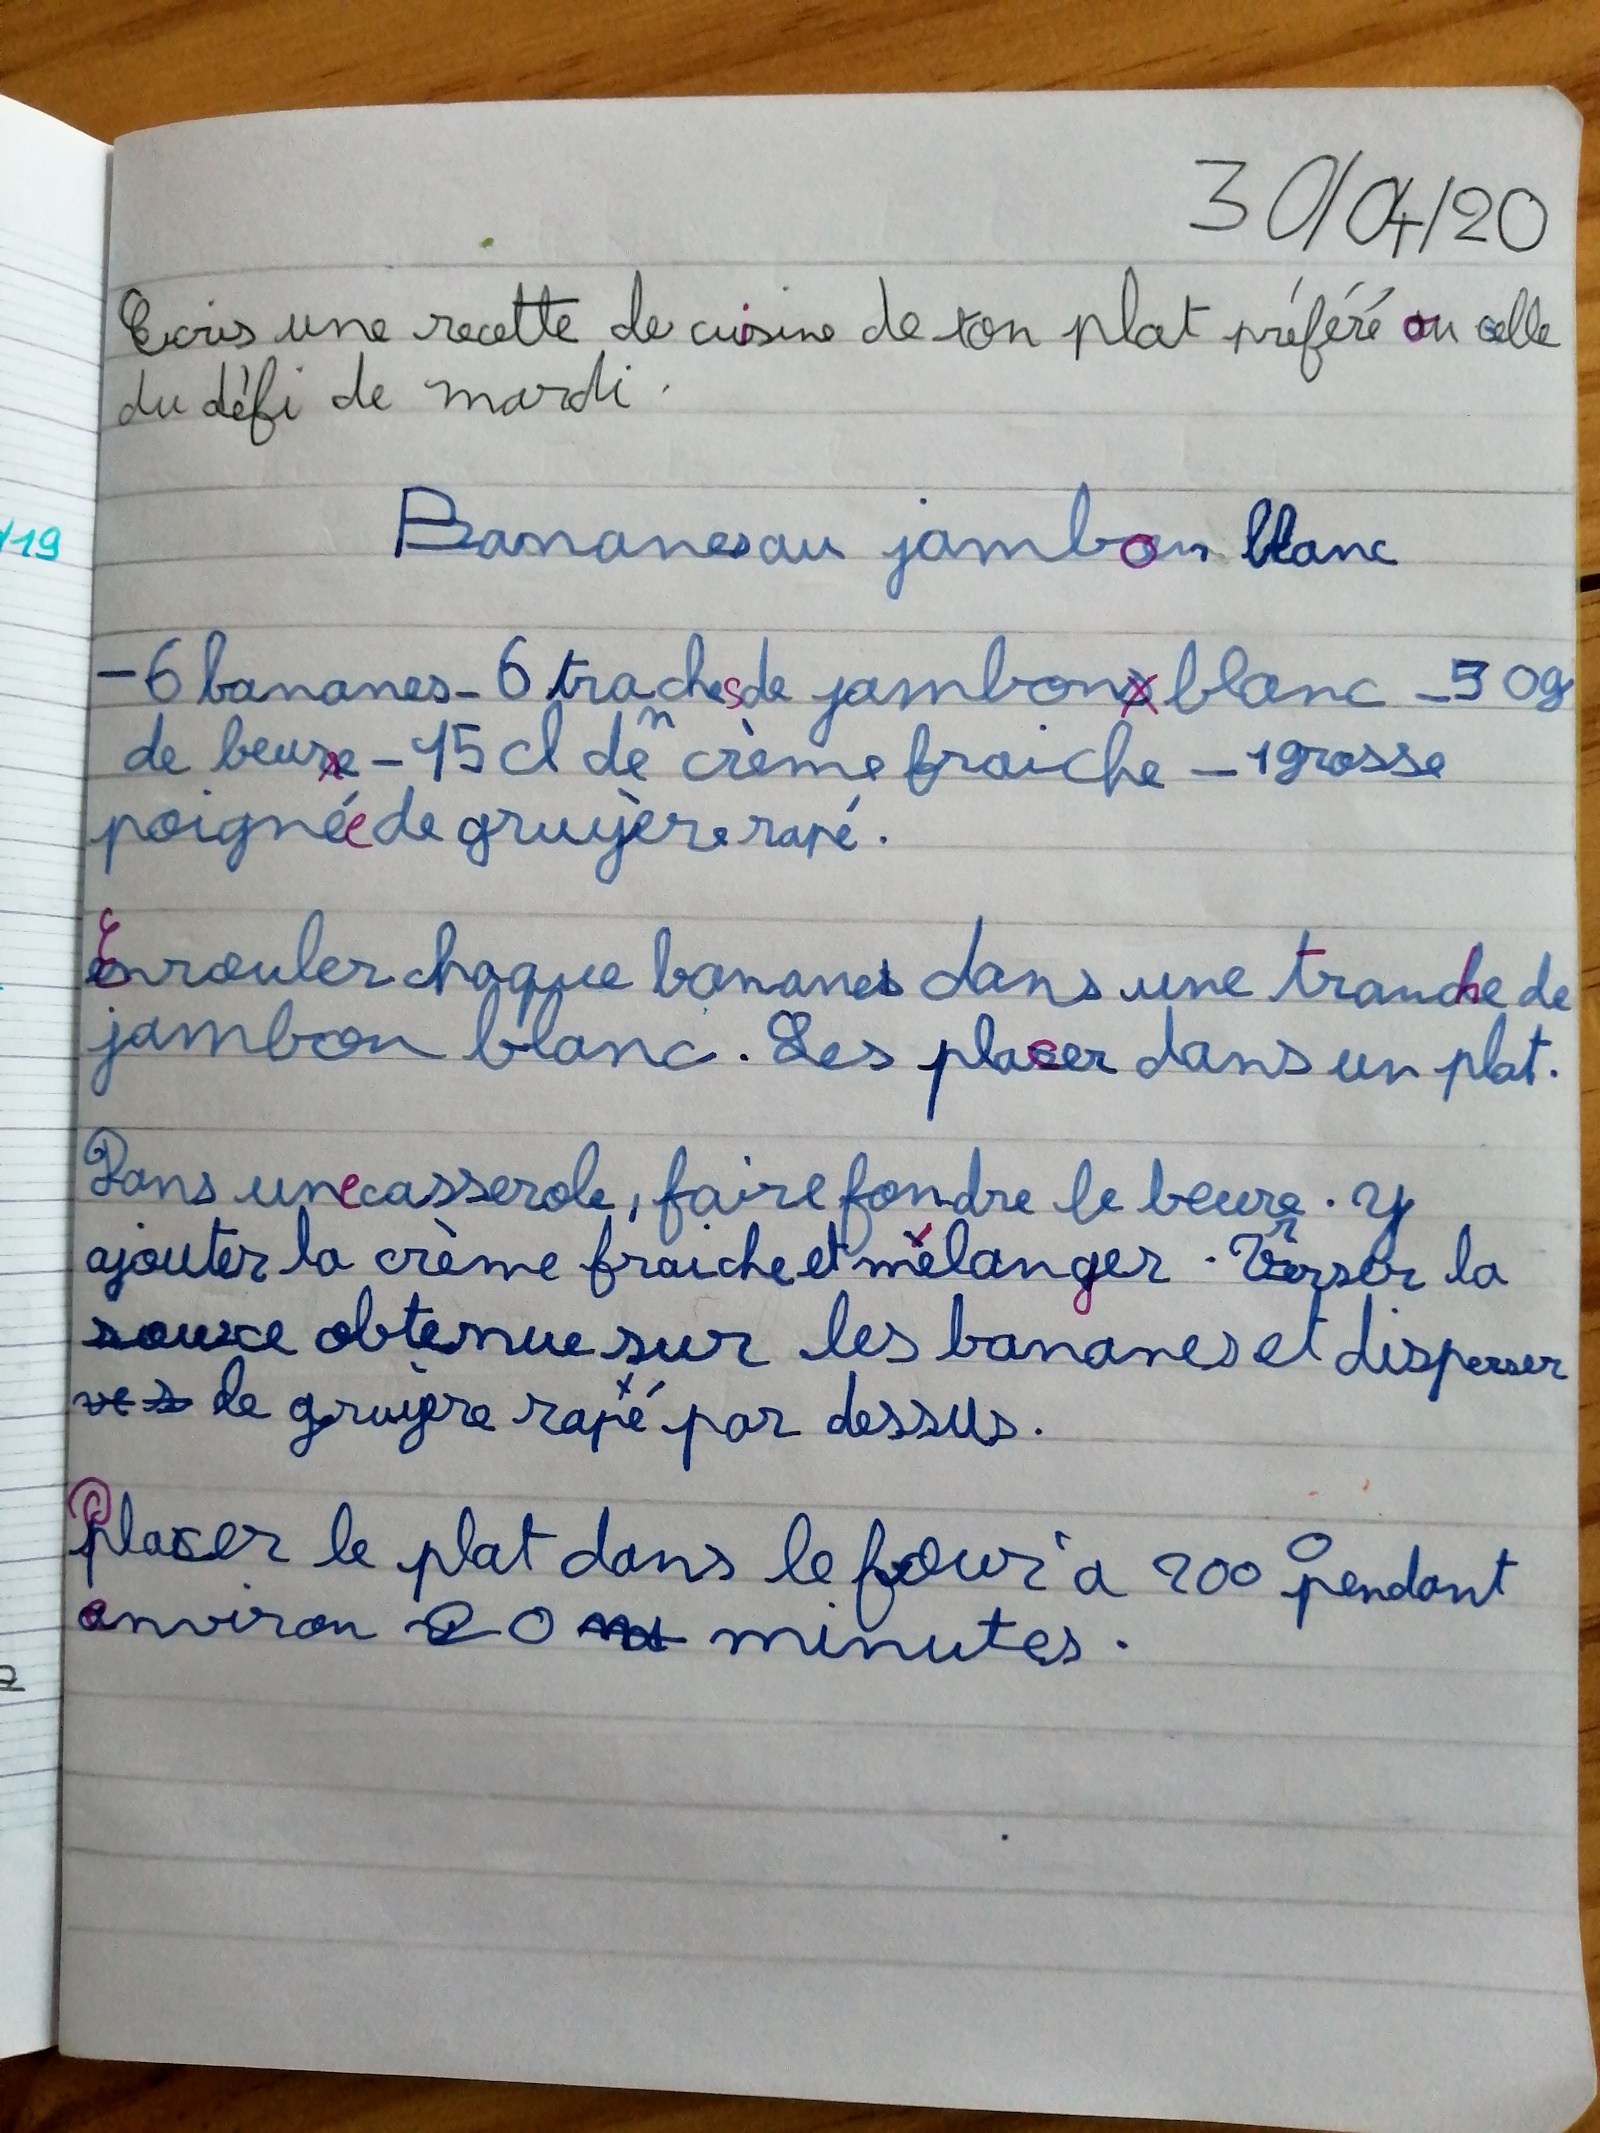 30/04/20
Ecris une recette de cuisine de ton plat préféré ou celle
du défi de mardi.
Bananes au jambon blanc
/19
-6 bananes - 6 traches de jambon blanc - 50g
n
de beure - 15 cl de crème fraiche - 1 grosse
poignée de gruyère rapé.
Enrouler chaque bananes dans une tranche de
jambon blanc. Les placer dans un plat.
Dans une casserole, faire fondre le beure. Y
r
ajouter la crème fraiche et mélanger. Verser la
sauce obtenue sur les bananes et disperser
le gruyère rapé par dessus.
Placer le plat dans le four à 200° pendant
environ 20 minutes.